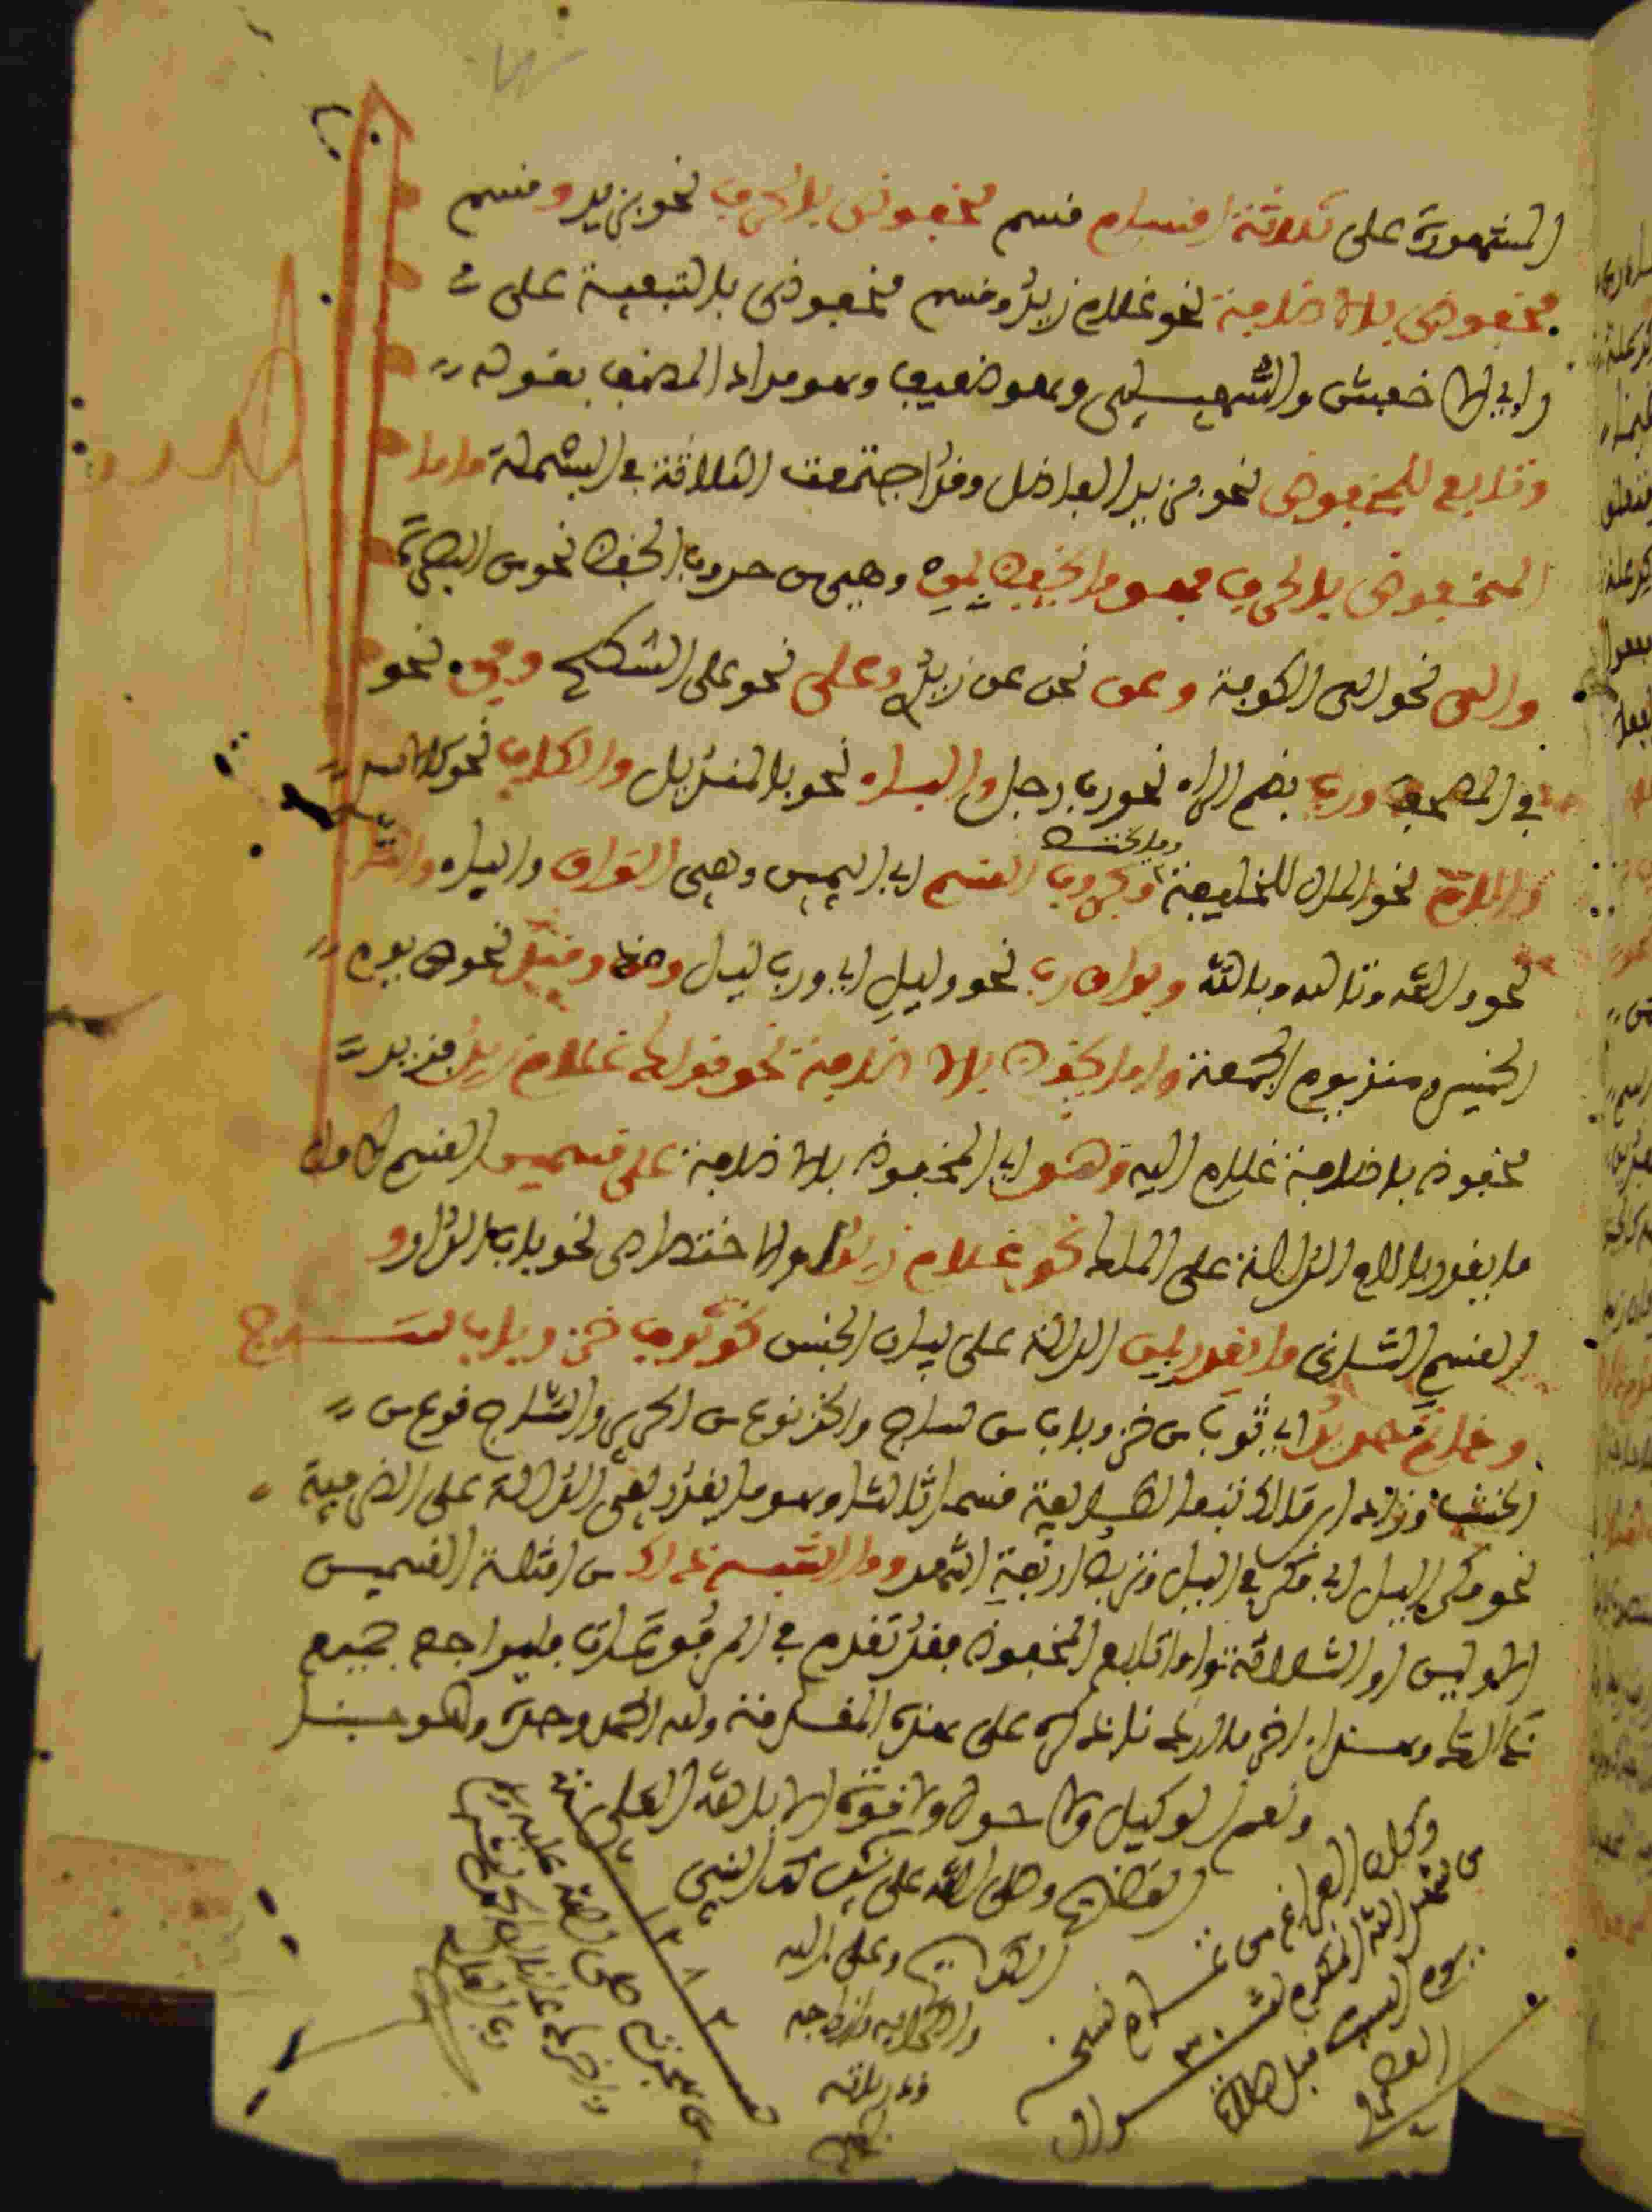 المشهورة على ثلاثة اقسام قسم مخفوض بالحرف نحو بزيد وقسم
مخفوض بالاضافة نحو غلام زيد وقسم مخفوض بالتبعية على
راي الاخفش والسهيلي وهو ضعيف وهو مراد المصنف بقوله
وتابع للمخفوض نحو بزيد الفاضل وقد اجتمعت الثلاثة في البسملة فاما
المخفوض بالحرف فهو ما يخفض بمن وهي من حروف الخفض نحو من البصرة
والى نحو الى الكوفة وعن نحو عن زيد وعلى نحو على السطح وفي نحو
في المصحف ورب بضم الراء نحو رب رجل والباء نحو بالمنديل والكاف نحو كالاسد
واللام نحو المال للخليفة وما يختص
وبحروف القسم اي اليمين وهي الواو والباء والتاء
نحو والله وتالله وبالله وبواو رب نحو وليل اي ورب ليل ومذ ومنذ نحو مذ يوم
الخميس ومنذ يوم الجمعة واما ما يخفض بالاضافة نحو قولك غلام زيد فزيد
مخفوض باضافة غلام اليه وهو اي المخفوض بالاضافة على قسمين القسم الاول
ما يقدر باللام الدالة على الملك نحو غلام زيد او الاختصاص نحو باب الدار و
القسم الثاني ما يقدر بمن الدالة على بيان الجنس نحو ثوب خز وباب ساج
وخاتم حديد اي ثوب من خز وباب من ساج والخز نوع من الحرير والساج نوع من
الخشب وزاد ابن مالك تبعا لطايفة قسما ثالثا وهو ما يقدر بفي الدالة على الظرفية
نحو مكر الليل اي مكر في الليل وتربص اربعة اشهر وما اشبه ذلك من امثلة القسمين
الاولين او الثلاثة واما تابع المخفوض فقد تقدم في المرفوعات فليراجع جميع
ذلك وهذا اخر ما اردنا ذكره على هذه المقدمة ولله الحمد وحده وهو حسبنا
ونعم الوكيل ولا حول ولا قوة الا بالله العلي
العظيم وصلى الله على سيدنا محمد النبي
الكريم وعلى اله
واصحابه وازواجه
وذريته
وكان الفراغ من تمام نسخه
من فضل الله المكرم لتسع ٣٠ شوال
يوم السبت قبل صلاة
العصر
١٢٨٢
من هجرته صلى الله عليه